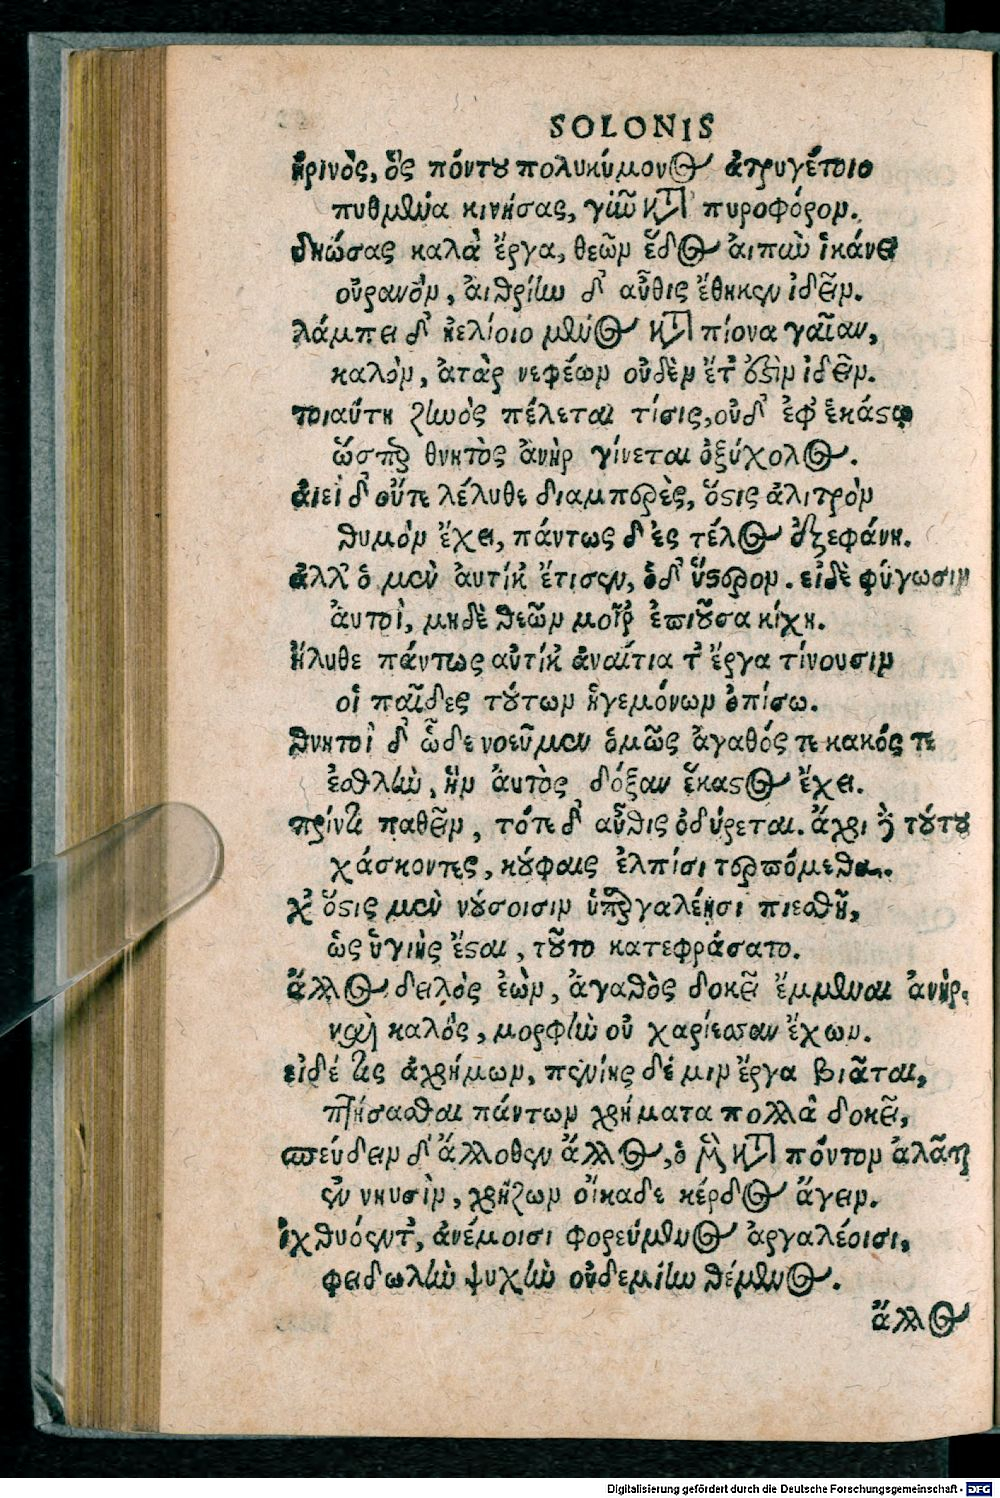 SOLONIS
ἠρινὸς, ὃς πόντου πολυκύμονος ἀτρυγέτοιο
πυθμένα κινήσας, γῆν κατὰ πυροφόρον.
δηώσας καλὰ ἔργα, θεῶν ἕδος αἰπὺν ἱκάνει
οὐρανὸν, αἰθρίην δ' αὖθις ἔθηκεν ἰδεῖν.
λάμπει δ' ἠελίοιο μένος κατὰ πίονα γαῖαν,
καλὸν, ἀτὰρ νεφέων οὐδὲν ἔτ' ἐστὶν ἰδεῖν.
τοιαύτη ζηνὸς πέλεται τίσις, οὐδ' ἐφ' ἑκάστῳ
ὥσπερ θνητὸς ἀνὴρ γίνεται ὀξύχολος.
ἀιεὶ δ' οὔτε λέλυθε διαμπερὲς, ὅστις ἀλιτρὸν
θυμὸν ἔχει, πάντως δ' ἐς τέλος ἐξεφάνη.
ἀλλ' ὁ μὲν ἀυτίκ' ἔτισεν, ὁδ' ὕστερον. εἰδὲ φύγωσιν
ἀυτοὶ, μηδὲ θεῶν μοῖρ' ἐπιοῦσα κίχη.
ἤλυθε πάντως αὐτίκ' ἀναίτια τ' ἔργα τίνουσιν
οἱ παῖδες τούτων ἡγεμόνων ὀπίσω.
θνητοὶ δ' ὧδε νοεῦμεν ὁμῶς ἀγαθός τε κακός τε
ἐσθλὴν, ἣν ἀυτὸς δόξαν ἕκαστος ἔχει.
πρίν τι παθεῖν, τότε δ' αὖθις ὀδύρεται. ἄχρι δὲ τούτου
χάσκοντες, κούφαις ἐλπίσι τερπόμεθα.
χ' ὅστις μὲν νούσοισιν ὑπ' ἀργαλέησι πιεσθῇ,
ὡς ὑγιὴς ἔσται, τοῦτο κατεφράσατο.
ἄλλος δειλὸς ἐὼν, ἀγαθὸς δοκεῖ ἔμμεναι ἀνήρ.
καὶ καλὸς, μορφὴν οὐ χαρίεσσαν ἔχων.
εἰδέ τις ἀχρήμων, πενίης δέ μιν ἔργα βιᾶται,
κτήσασθαι πάντων χρήματα πολλὰ δοκεῖ,
σπεύδειν δ' ἄλλοθεν ἄλλος, ὁ μὲν κατὰ πόντον ἀλᾶται
ἐν νηυσὶν, χρῄζων οἴκαδε κέρδος ἄγειν.
ἰχθυόεντ', ἀνέμοισι φορεύμενος ἀργαλέοισι,
φειδωλὴν ψυχὴν οὐδεμίην θέμενος.
ἄλλος
Digitalisierung gefördert durch die Deutsche Forschungsgemeinschaft - DFG